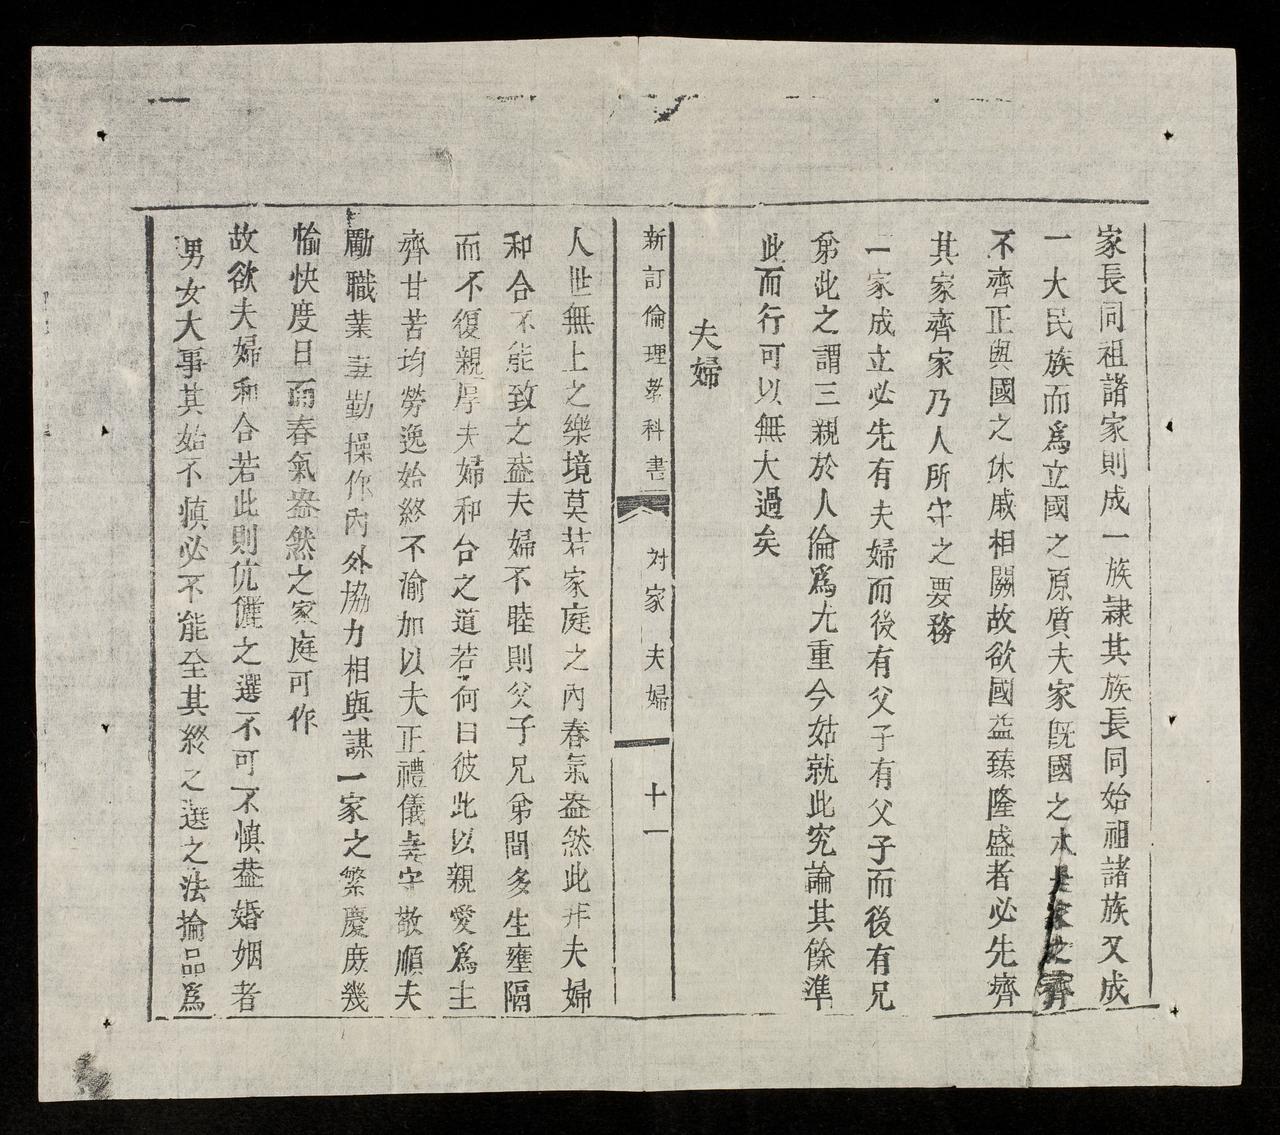 家長同祖諸家則成一族隷其族長同始祖諸族又成
一大民族而爲立國之原質夫家旣國之本是家之齊
不齊正與國之休戚相關故欲國益臻隆盛者必先齊
其家齊家乃人所守之要務
一家成立必先有夫婦而後有父子有父子而後有兄
弟此之謂三親於人倫爲尤重今姑就此究論其餘準
此而行可以無大過矣
夫婦
新訂倫理敎科書 対家 夫婦 十一
人世無上之樂境莫若家庭之內春氣盎然此非夫婦
和合不能致之葢夫婦不睦則父子兄弟間多生壅隔
而不復親厚夫婦和合之道若何曰彼此以親愛爲主
齊甘苦均勞逸始終不渝加以夫正禮儀妻守敬順夫
勵職業妻勤操作內外協力相與謀一家之繁慶庶幾
愉快度日而春氣盎然之家庭可作
故欲夫婦和合若此則伉儷之選不可不慎葢婚姻者
男女大事其始不慎必不能全其終之選之法掄品爲